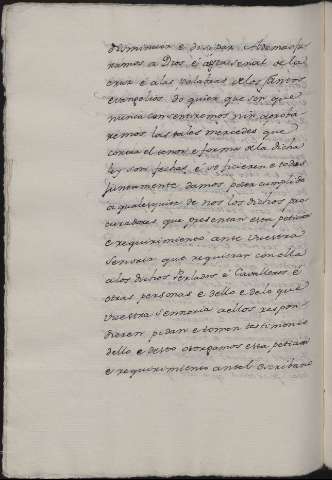 disminucion e disipar. Ademas ju
ramos a Dios é a esta señal de la
cruz é a las palabras de los santos
evangelios do quier que son que
nunca consentiremos nin aproba
remos las tales mercedes que
contra el tenor e forma de la dicha
ley son fechas é se ficieren e todos
juntamente damos poder cumplido
a qualesquier de nos los dichos pro
curadores que presenten esta peticion
e requirimiento ante vuestra
Señoria que requieran con ella
a los dichos Perlados é Cavalleros é
otras personas e dello e de lo que
vuestra Sennoria a ellos respon
dieren pidan e tomen testimonio
dello e desto otorgamos esta peticion
e requirimiento antel escribano